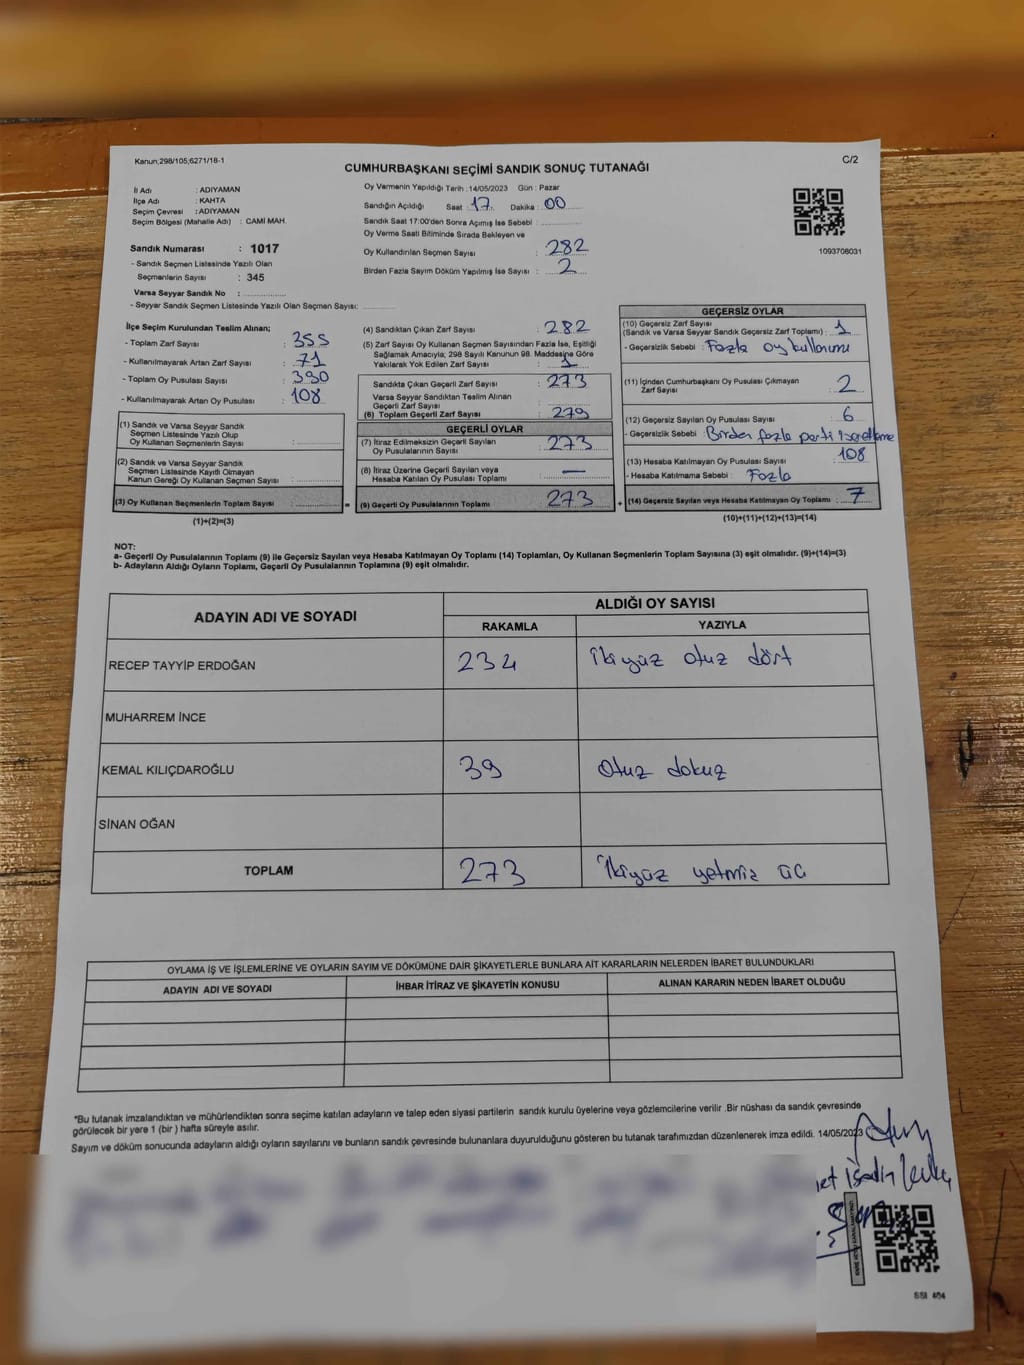 Kanun;298/105;6271/18-1
C/2
CUMHURBAŞKANI SEÇİMİ SANDIK SONUÇ TUTANAĞI
İl Adı : ADIYAMAN
İlçe Adı : KAHTA
Seçim Çevresi : ADIYAMAN
Seçim Bölgesi (Mahalle Adı) : CAMİ MAH.
Sandık Numarası : 1017
- Sandık Seçmen Listesinde Yazılı Olan
Seçmenlerin Sayısı : 345
Varsa Seyyar Sandık No :
- Seyyar Sandık Seçmen Listesinde Yazılı Olan Seçmen Sayısı:
Oy Vermenin Yapıldığı Tarih : 14/05/2023 Gün : Pazar
Sandığın Açıldığı Saat : 17 Dakika : 00
Sandık Saat 17:00'den Sonra Açımış İse Sebebi :
Oy Verme Saati Bitiminde Sırada Bekleyen ve
Oy Kullandırılan Seçmen Sayısı : 282
Birden Fazla Sayım Döküm Yapılmış İse Sayısı : 2
1093708031
İlçe Seçim Kurulundan Teslim Alınan;
- Toplam Zarf Sayısı : 355
- Kullanılmayarak Artan Zarf Sayısı : 71
- Toplam Oy Pusulası Sayısı : 390
- Kullanılmayarak Artan Oy Pusulası : 108
(1) Sandık ve Varsa Seyyar Sandık
Seçmen Listesinde Yazılı Olup
Oy Kullanan Seçmenlerin Sayısı :
(2) Sandık ve Varsa Seyyar Sandık
Seçmen Listesinde Kayıtlı Olmayan
Kanun Gereği Oy Kullanan Seçmen Sayısı :
(3) Oy Kullanan Seçmenlerin Toplam Sayısı : =
(1)+(2)=(3)
(4) Sandıktan Çıkan Zarf Sayısı : 282
(5) Zarf Sayısı Oy Kullanan Seçmen Sayısından Fazla İse, Eşitliği
Sağlamak Amacıyla; 298 Sayılı Kanunun 98. Maddesine Göre
Yakılarak Yok Edilen Zarf Sayısı : 1
Sandıkta Çıkan Geçerli Zarf Sayısı : 273
Varsa Seyyar Sandıktan Teslim Alınan
Geçerli Zarf Sayısı :
(6) Toplam Geçerli Zarf Sayısı : 279
GEÇERLİ OYLAR
(7) İtiraz Edilmeksizin Geçerli Sayılan
Oy Pusulalarının Sayısı : 273
(8) İtiraz Üzerine Geçerli Sayılan veya
Hesaba Katılan Oy Pusulası Toplamı : —
(9) Geçerli Oy Pusulalarının Toplamı : 273 +
GEÇERSİZ OYLAR
(10) Geçersiz Zarf Sayısı
(Sandık ve Varsa Seyyar Sandık Geçersiz Zarf Toplamı) : 1
- Geçersizlik Sebebi : Fazla oy kullanımı
(11) İçinden Cumhurbaşkanı Oy Pusulası Çıkmayan
Zarf Sayısı : 2
(12) Geçersiz Sayılan Oy Pusulası Sayısı : 6
- Geçersizlik Sebebi : Birden fazla parti işaretleme
(13) Hesaba Katılmayan Oy Pusulası Sayısı : 108
- Hesaba Katılmama Sebebi : Fazla
(14) Geçersiz Sayılan veya Hesaba Katılmayan Oy Toplamı : 7
(10)+(11)+(12)+(13)=(14)
NOT:
a- Geçerli Oy Pusulalarının Toplamı (9) ile Geçersiz Sayılan veya Hesaba Katılmayan Oy Toplamı (14) Toplamları, Oy Kullanan Seçmenlerin Toplam Sayısına (3) eşit olmalıdır. (9)+(14)=(3)
b- Adayların Aldığı Oyların Toplamı, Geçerli Oy Pusulalarının Toplamına (9) eşit olmalıdır.
ADAYIN ADI VE SOYADI ALDIĞI OY SAYISI
RAKAMLA YAZIYLA
RECEP TAYYİP ERDOĞAN 234 İkiyüz otuz dört
MUHARREM İNCE
KEMAL KILIÇDAROĞLU 39 Otuz dokuz
SİNAN OĞAN
TOPLAM 273 İkiyüz yetmiş üc
OYLAMA İŞ VE İŞLEMLERİNE VE OYLARIN SAYIM VE DÖKÜMÜNE DAİR ŞİKAYETLERLE BUNLARA AİT KARARLARIN NELERDEN İBARET BULUNDUKLARI
ADAYIN ADI VE SOYADI İHBAR İTİRAZ VE ŞİKAYETİN KONUSU ALINAN KARARIN NEDEN İBARET OLDUĞU
*Bu tutanak imzalandıktan ve mühürlendikten sonra seçime katılan adayların ve talep eden siyasi partilerin sandık kurulu üyelerine veya gözlemcilerine verilir .Bir nüshası da sandık çevresinde
görülecek bir yere 1 (bir ) hafta süreyle asılır.
Sayım ve döküm sonucunda adayların aldığı oyların sayılarını ve bunların sandık çevresinde bulunanlara duyurulduğunu gösteren bu tutanak tarafımızdan düzenlenerek imza edildi. 14/05/2023
SSI 404